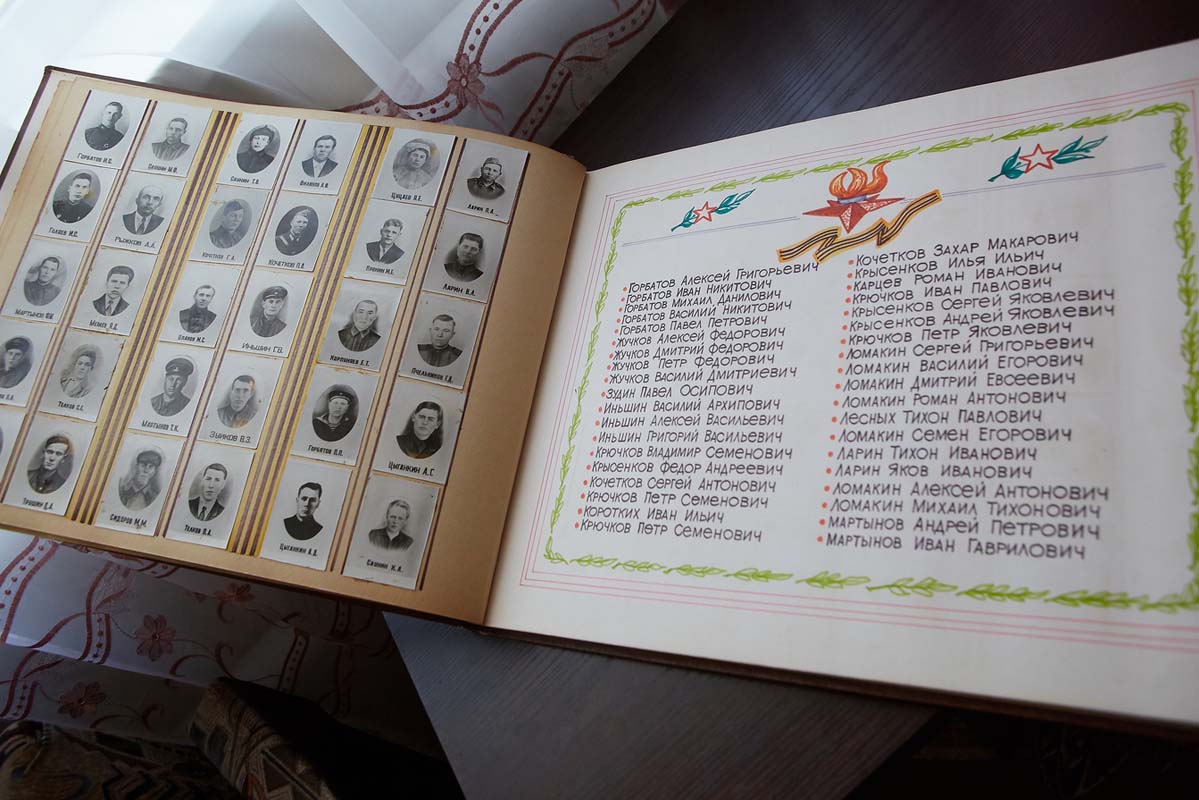 ГОРБАТОВ И.С.
СЕЛИН Т.Я.
ФИЛИНОВ А.В.
ЛАРИН П.А.
РЫЖКОВ А.А.
КОЧЕТКОВ Г.А.
КОЧЕТКОВ П.Я.
ПРОНИН М.Е.
ЛАРИН В.А.
МАРТЫНОВ Ф.И.
ИНЬШИН Г.В.
ПЧЕЛЬНИКОВ Г.Д.
ТЕЛКОВ С.Е.
МАРТЫНОВ Т.К.
ЗМЕЙКОВ В.З.
ГОРБАТОВ П.П.
ЦЫГАНКИН А.Г.
ТРОШИН Д.А.
СИДОРОВ М.М.
ТЕЛКОВ П.А.
ЦЫГАНКИН А.Д.
СЕЛИН К.А.
ГОРБАТОВ АЛЕКСЕЙ ГРИГОРЬЕВИЧ
ГОРБАТОВ ИВАН НИКИТОВИЧ
ГОРБАТОВ МИХАИЛ ДАНИЛОВИЧ
ГОРБАТОВ ВАСИЛИЙ НИКИТОВИЧ
ГОРБАТОВ ПАВЕЛ ПЕТРОВИЧ
ЖУЧКОВ АЛЕКСЕЙ ФЕДОРОВИЧ
ЖУЧКОВ ДМИТРИЙ ФЕДОРОВИЧ
ЖУЧКОВ ПЕТР ФЕДОРОВИЧ
ЖУЧКОВ ВАСИЛИЙ ДМИТРИЕВИЧ
ЗУДИН ПАВЕЛ ОСИПОВИЧ
ИНЬШИН ВАСИЛИЙ АРХИПОВИЧ
ИНЬШИН АЛЕКСЕЙ ВАСИЛЬЕВИЧ
ИНЬШИН ГРИГОРИЙ ВАСИЛЬЕВИЧ
КРЮЧКОВ ВЛАДИМИР СЕМЕНОВИЧ
КРЫСЕНКОВ ФЕДОР АНДРЕЕВИЧ
КОЧЕТКОВ СЕРГЕЙ АНТОНОВИЧ
КРЮЧКОВ ПЕТР СЕМЕНОВИЧ
КОРОТКИХ ИВАН ИЛЬИЧ
КРЮЧКОВ ПЕТР СЕМЕНОВИЧ
КОЧЕТКОВ ЗАХАР МАКАРОВИЧ
КРЫСЕНКОВ ИЛЬЯ ИЛЬИЧ
КАРЦЕВ РОМАН ИВАНОВИЧ
КРЮЧКОВ ИВАН ПАВЛОВИЧ
КРЫСЕНКОВ СЕРГЕЙ ЯКОВЛЕВИЧ
КРЫСЕНКОВ АНДРЕЙ ЯКОВЛЕВИЧ
КРЮЧКОВ ПЕТР ЯКОВЛЕВИЧ
ЛОМАКИН СЕРГЕЙ ГРИГОРЬЕВИЧ
ЛОМАКИН ВАСИЛИЙ ЕГОРОВИЧ
ЛОМАКИН ДМИТРИЙ ЕВСЕЕВИЧ
ЛОМАКИН РОМАН АНТОНОВИЧ
ЛЕСНЫХ ТИХОН ПАВЛОВИЧ
ЛОМАКИН СЕМЕН ЕГОРОВИЧ
ЛАРИН ТИХОН ИВАНОВИЧ
ЛАРИН ЯКОВ ИВАНОВИЧ
ЛОМАКИН АЛЕКСЕЙ АНТОНОВИЧ
ЛОМАКИН МИХАИЛ ТИХОНОВИЧ
МАРТЫНОВ АНДРЕЙ ПЕТРОВИЧ
МАРТЫНОВ ИВАН ГАВРИЛОВИЧ